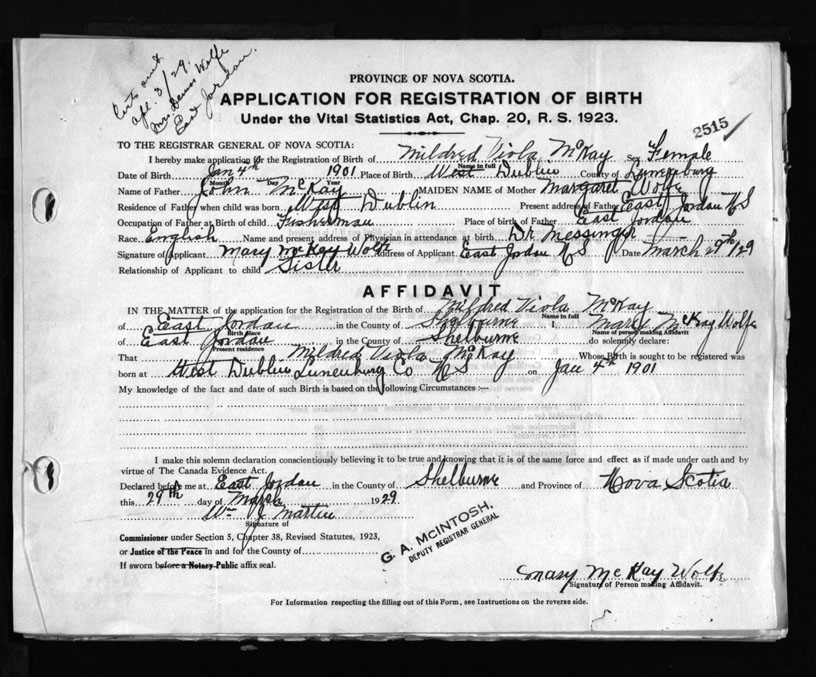 Certs out
Apl. 3/29.
Mrs Wolfe
East Jordan.
PROVINCE OF NOVA SCOTIA.
APPLICATION FOR REGISTRATION OF BIRTH
Under the Vital Statistics Act, Chap. 20, R. S. 1923.
2515 ✓
TO THE REGISTRAR GENERAL OF NOVA SCOTIA:
I hereby make application for the Registration of Birth of Mildred Viola McKay Sex Female
Name in full
Date of Birth Jan 4th 1901 Place of Birth West Dublin County of Lunenburg
Month Day Year
Name of Father John McKay MAIDEN NAME of Mother Margaret Wolfe
Residence of Father when child was born West Dublin Present address of Father East Jordan N S
Occupation of Father at Birth of child Fisherman Place of birth of Father East Jordan
Race English Name and present address of Physician in attendance at birth Dr Messinger
Signature of Applicant Mary McKay Wolfe Address of Applicant East Jordan N S Date March 29th/29
Relationship of Applicant to child Sister
AFFIDAVIT
IN THE MATTER of the application for the Registration of the Birth of Mildred Viola McKay
Name in full
of East Jordan in the County of Shelburne I, Mary McKay Wolfe
Birth Place Name of person making Affidavit
of East Jordan in the County of Shelburne do solemnly declare:
Present residence
That Mildred Viola McKay Whose Birth is sought to be registered was
born at West Dublin Lunenburg Co N S on Jan 4th 1901
My knowledge of the fact and date of such Birth is based on the following Circumstances :—
I make this solemn declaration conscientiously believing it to be true and knowing that it is of the same force and effect as if made under oath and by
virtue of The Canada Evidence Act.
Declared before me at East Jordan in the County of Shelburne and Province of Nova Scotia
this 29th day of March 1929
Wm J Martin
Signature of
Commissioner under Section 5, Chapter 38, Revised Statutes, 1923,
or Justice of the Peace in and for the County of
If sworn before a Notary Public affix seal.
G. A. McINTOSH,
DEPUTY REGISTRAR GENERAL
Mary McKay Wolfe
Signature of Person making Affidavit.
For Information respecting the filling out of this Form, see Instructions on the reverse side.